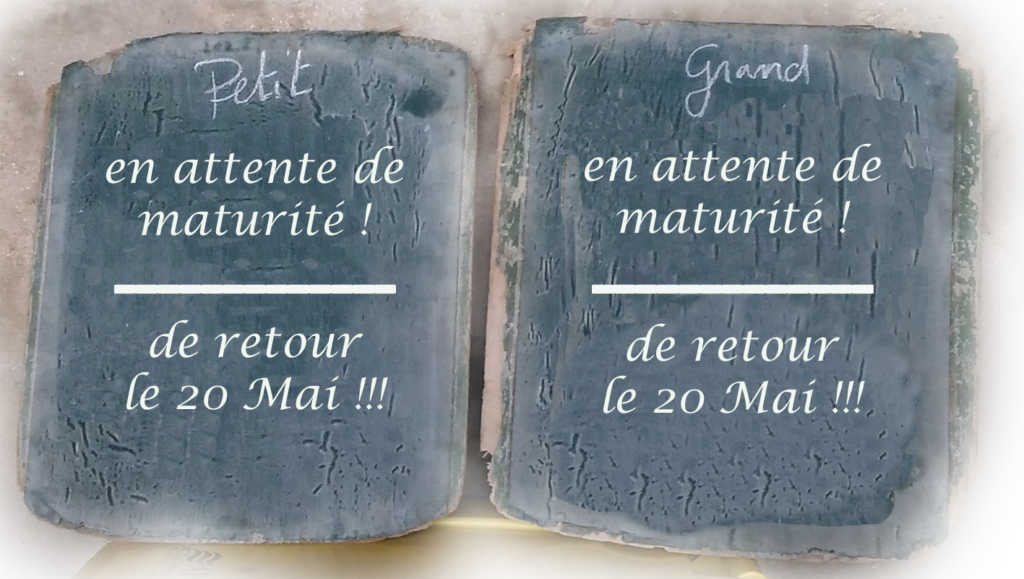 Petit
en attente de
maturité !
de retour
le 20 Mai !!!
Grand
en attente de
maturité !
de retour
le 20 Mai !!!